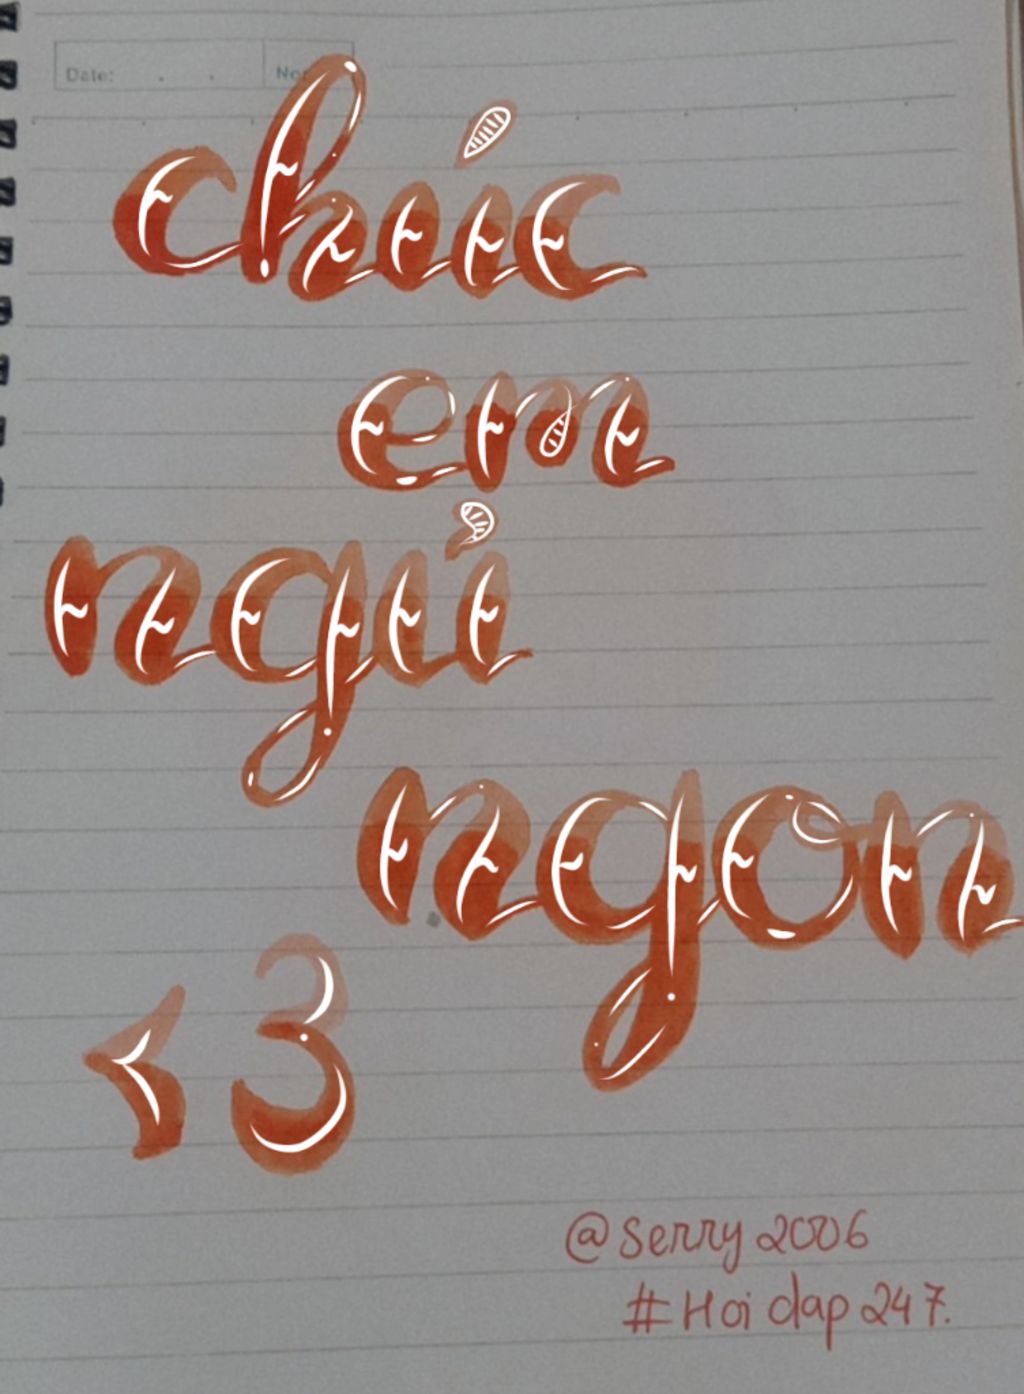 Date: . . No:
chúc
em
ngủ
ngon
<3
@serry2006
#Hoidap247.